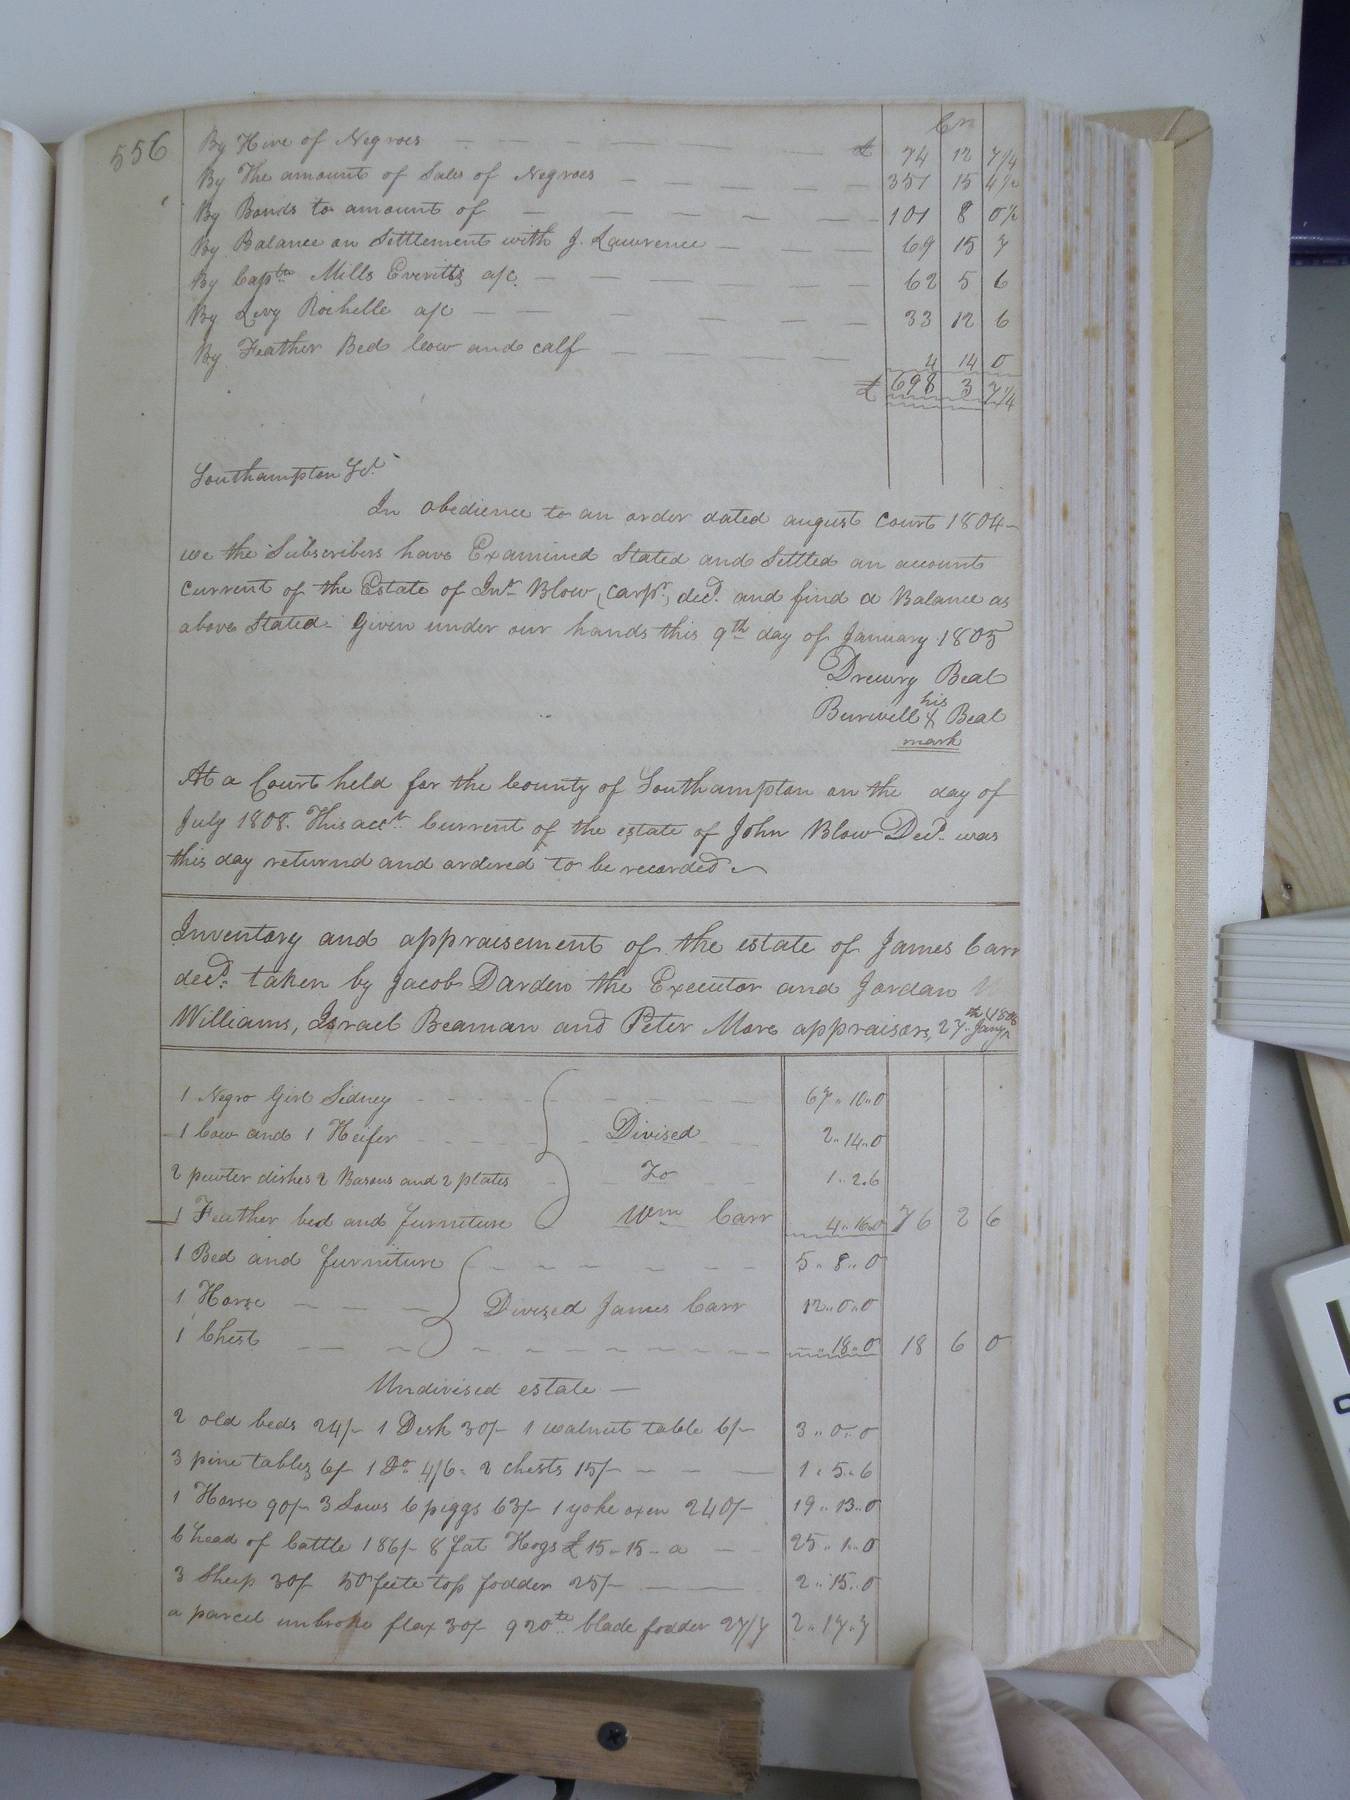 556
Cr
By Hire of Negroes £ 74 12 7 1/4
By The amount of Sales of Negroes 351 15 4 1/2
By Bonds to amount of 101 8 0 1/2
By Balance on Settlement with J. Lawrence 69 15 7
By Capth Mills Everitts a/c. 62 5 6
By Levy Rochelle a/c 33 12 6
By Feather Bed Cow and calf 4 14 0
£ 698 3 7 1/4
Southampton
In obedience to an order dated august court 1804-
we the Subscribers have Examined Stated and Settled an account
current of the Estate of Jno. Blow, (carpr.) decd. and find a Balance as
above Stated. Given under our hands this 9th day of January 1805
Drewry Beal
Burwell his X Beal
mark
At a Court held for the County of Southampton on the day of
July 1808. This acct. Current of the estate of John Blow Decd. was
this day returnd and ordered to be recorded
Inventory and appraisement of the estate of James Carr
decd. taken by Jacob Darden the Executor and Jordan
Williams, Israel Beaman and Peter More appraisors, 27th Jany 1806
1 Negro Girl Sidney 67..10..0
1 Cow and 1 Heifer Divised 2..14..0
2 pewter dishes 2 Basons and 2 plates To 1..2..6
1 Feather bed and furniture Wm Carr 4..16..0 76 2 6
1 Bed and furniture 5..8..0
1 Horse Divised James Carr 12..0..0
1 Chest ..18..0 18 6 0
Undivised estate
2 old beds 24/- 1 Desk 30/- 1 walnut table 6/- 3..0..0
3 pine tables 6/- 1 Do 4/6. 2 chests 15/- 1..5..6
1 Horse 90/- 3 Sows 6 piggs 63/- 1 yoke oxen 240/- 19..13..0
6 head of Cattle 186/- 8 fat Hogs £15-15-0 25..1..0
3 Sheep 30/- 50 feete top fodder 25/- 2..15..0
a parcel unbroke flax 30/- 920th blade fodder 27/7 2..17..7